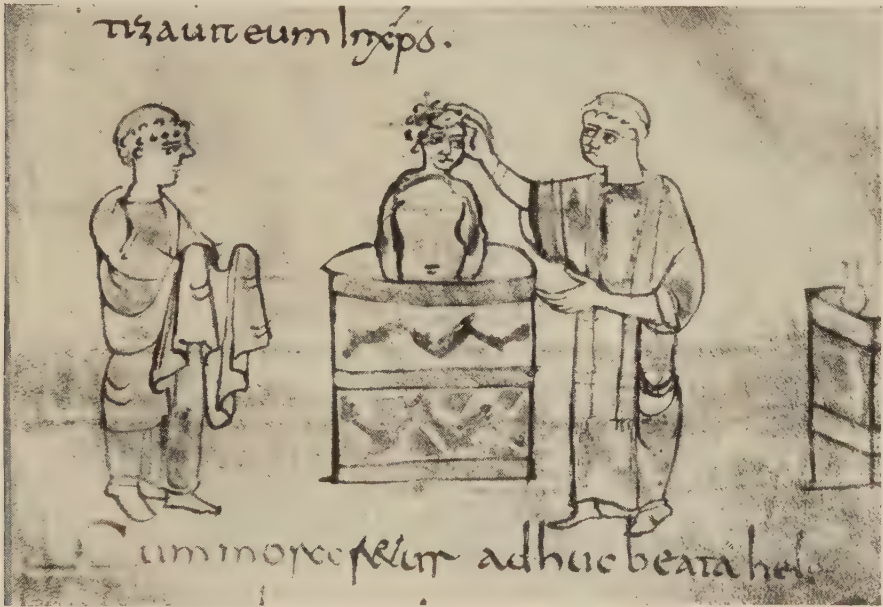 tizauit eum In xpo.
Cum adhuc beata hel